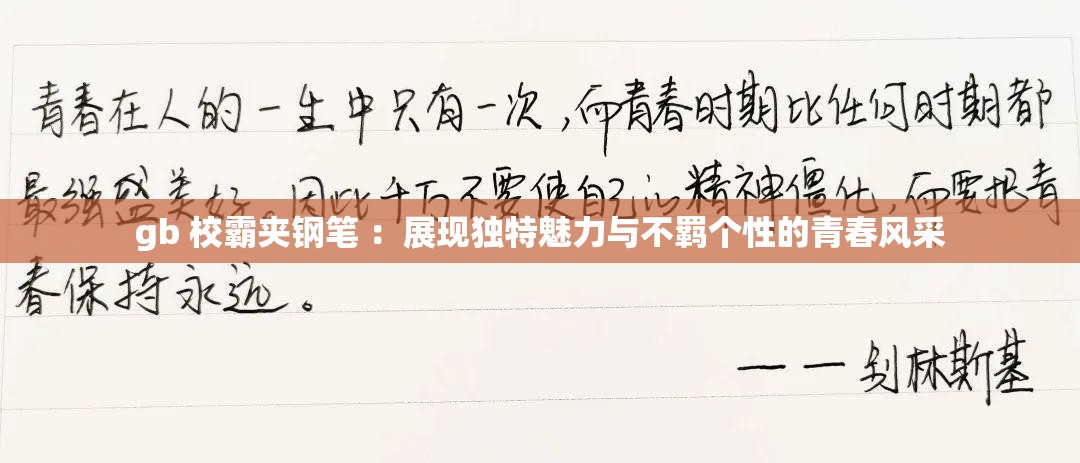 青春在人的一生中只有一次,而青春时期比任何时期都
最强盛美好。因此千万不要使自己的精神僵化,而要把青
gb 校霸夹钢笔 ：展现独特魅力与不羁个性的青春风采
春保持永远。
——别林斯基